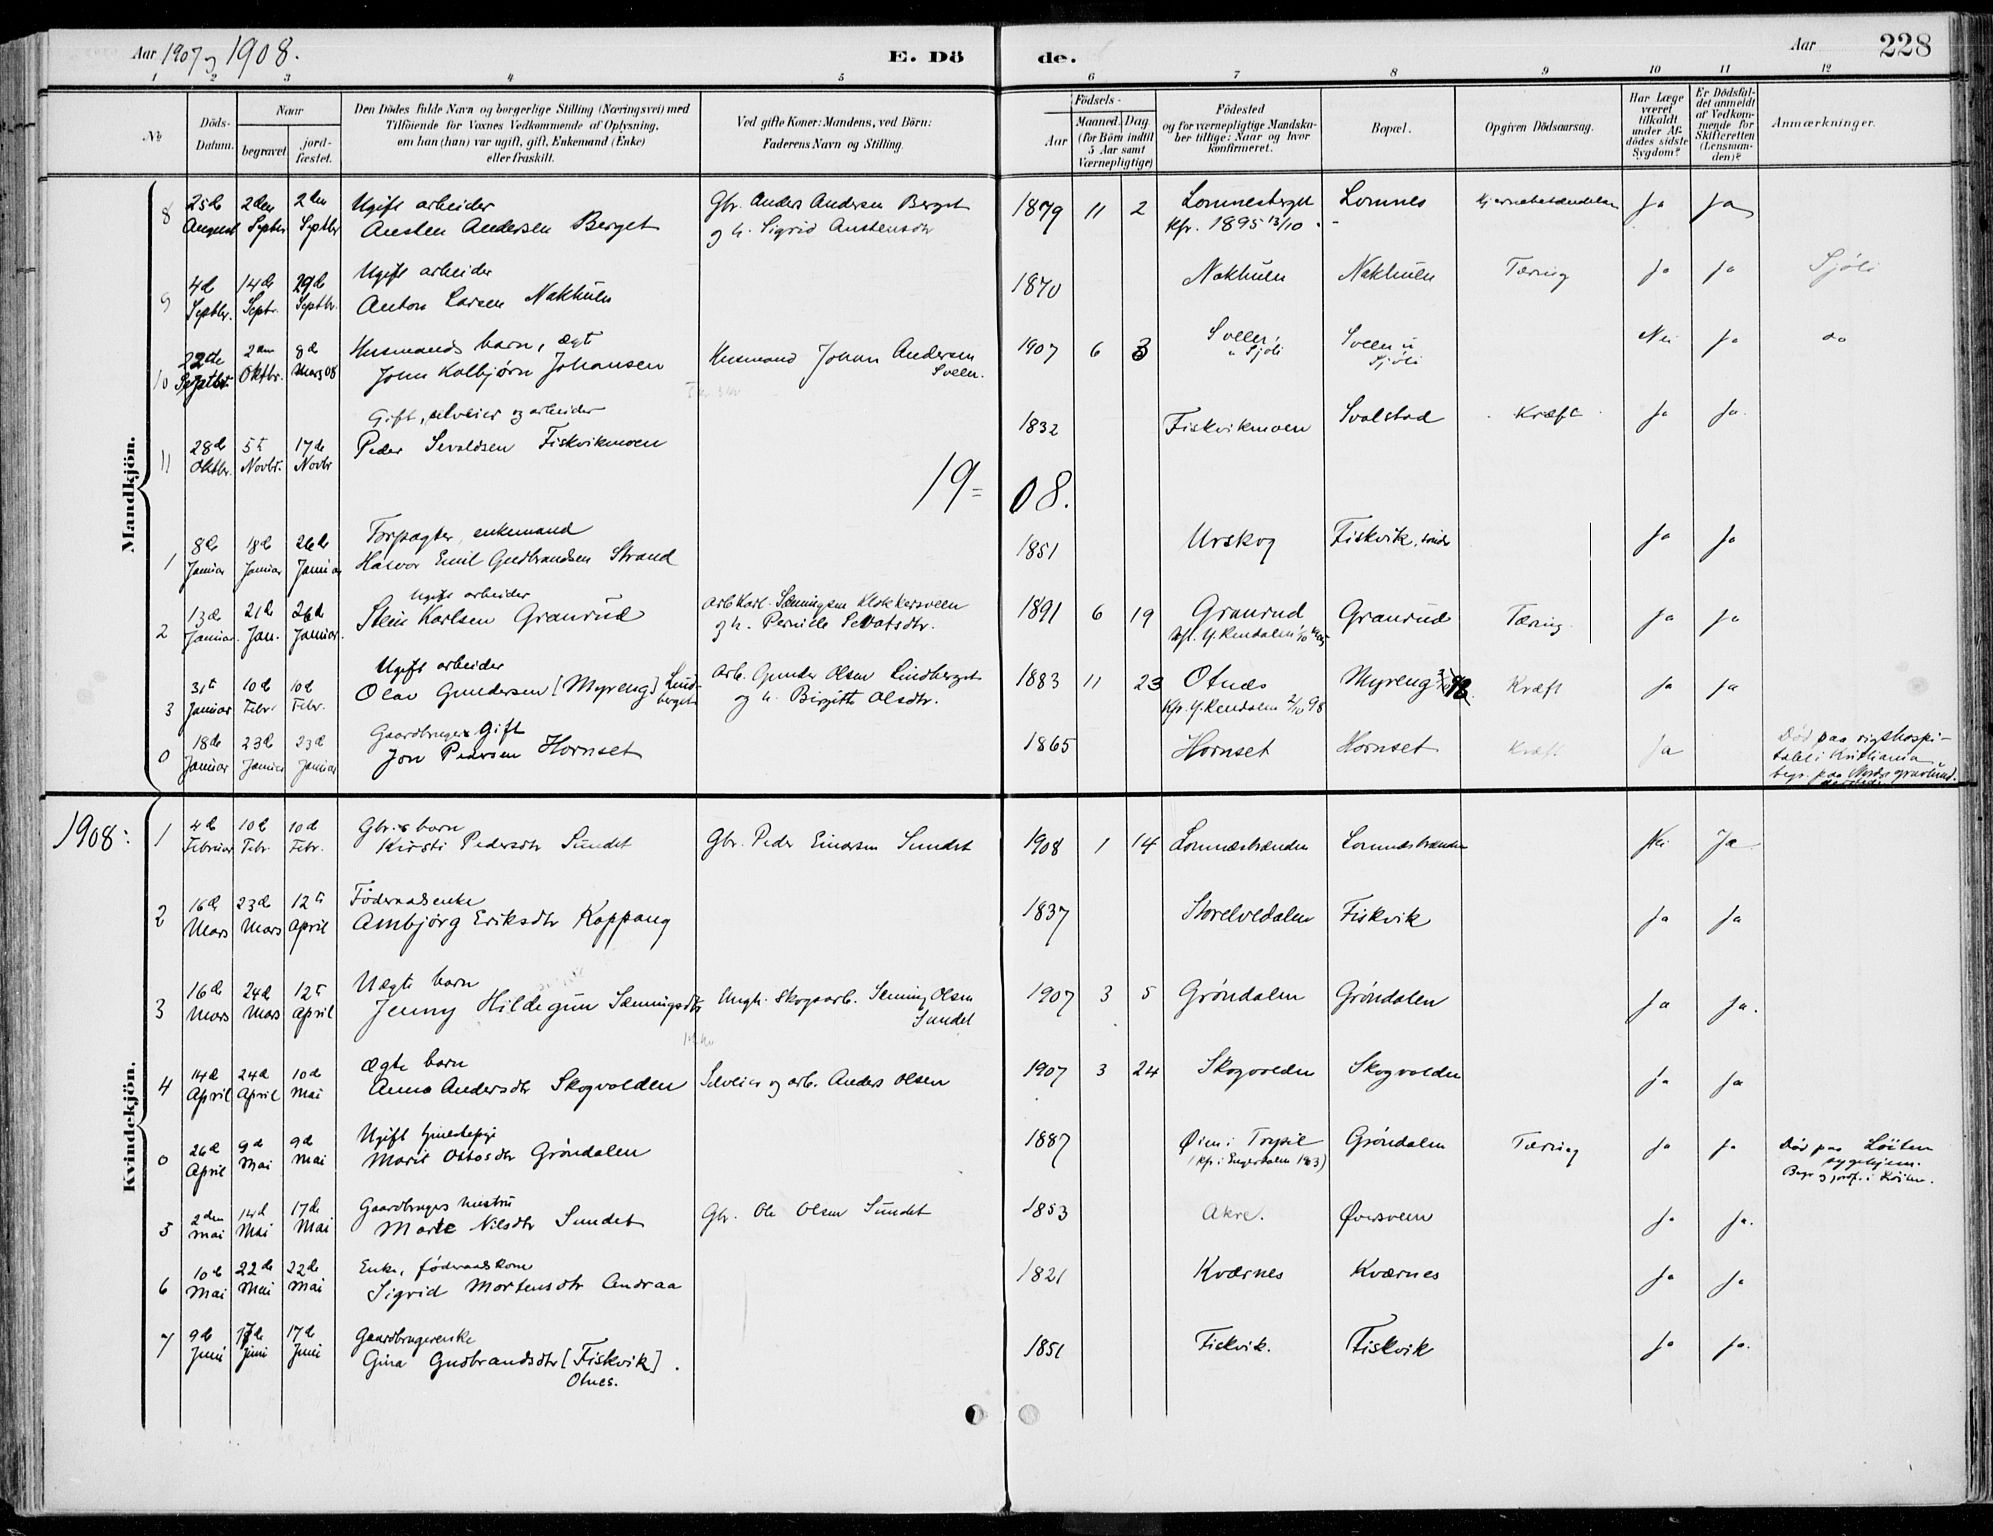 Aar 1907 og 1908.
E. Dö de.
Aar 228
1 2 3 4 5 6 7 8 9 10 11 12
№
Döds-Datum.
Naar
begravet
jordfæstet.
Den Dödes fulde Navn og borgerlige Stilling (Næringsvei) med
Tilföiende for Voxnes Vedkommende af Oplysning,
om han (hun) var ugift, gift, Enkemand (Enke)
eller fraskilt.
Ved gifte Koner: Mandens, ved Börn:
Faderens Navn og Stilling.
Födsels-
Aar
Maaned. Dag.
(for Börn indtil
5 Aar samt
Værnepligtige)
Födested
og for værnepligtige Mandska-
ber tillige: Naar og hvor
konfirmeret.
Bopæl.
Opgiven Dödsaarsag.
Har Læge
været
tilkaldt
under Af-
dödes sidste
Sygdom?
Er Dödsfal-
det anmeldt
af Vedkom-
mende for
Skifteretten
(Lensman-
den)?
Anmærkninger.
Mandkjön.
8 25de August 2den Septbr 2den Septbr Ugift arbeider
Austen Andersen Berget Gbr. Anders Andersen Berget
og h. Sigrid Austensdtr 1879 11 2 Lomnesberget
Kfr. 1895 13/10. Lomnes Ja Ja
9 4de Septbr. 14de Septr. 29de Septbr. Ugift arbeider
Anton Larsen Nakhulen 1870 Nakhulen Nakhulen Tæring Ja Ja Sjöli
10 22de Septbr. 2den Oktbr. 8de Mars 08 Husmands barn, ægt
John Kolbjørn Johansen Husmand Johan Andersen
Sveen. 1907 6 3 Sveen,
u Sjöli Sveen u
Sjöli Nei Ja do
11 28de Oktbr. 5t Novbr. 17de Novbr Gift, selveier og arbeider
Peder Sevaldsen Fiskvikmoen 1832 Fiskvikmoen Svalstad Kræft Ja Ja.
19=08.
1 8de Januar 18de Januar 26de Januar Forpagter, enkemand
Halvor Emil Gudbrandsen Strand 1851 Urskog Fiskvik, søndr Ja Ja
2 13de Januar. 21de Jan. 26de Januar. Ugift arbeider
Stein Karlsen Granrud Arb Karl Sæmingsen Klokkersveen
og h. Pernille Sevatsdtr. 1891 6 19 Granrud Granrud Tæring. Ja Ja
3 31t Januar 10de Febr. 10de Febr. Ugift arbeider
Olav Gundersen [Myreng] Lind-
berget Arb. Gunder Olsen Lindberget
og h. Birgitte Olsdtr. 1883 11 23 Otnes
Kfr. Y. Rendalen 2/10 98 Myreng Kræft Ja Ja
0 18de Januar 23de Januar 23de Januar Gaardbruger Gift
Jon Pedersen Hornset 1865 Hornset Hornset Kræft Ja Död paa rigshospi-
talet i Kristiania
begr. paa Nordre gravlund.
Kvindekjön.
1908: 1 4de Februar 10de Febr. 10de Febr. Gbr.s barn
Kirsti Pedersdtr Sundet Gbr. Peder Einarsen Sundet 1908 1 14 Lomnæsstranden Lomnæsstranden Nei Ja
2 16de Mars 23de Mars 12te April Föderaadsenke
Ambjörg Eriksdtr Koppang 1837 Storelvedalen Fiskvik Ja Ja
3 16de Mars 24de Mars 12te April Uægte barn
Jenny Hildegun Sæmingsdtr Ungk. skogsarb. Sæming Olsen
Sundet 1907 3 5 Gröndalen Gröndalen Ja Ja.
4 14de April 24de April 10de Mai Ægte barn
Anna Andersdtr Skogvolden Selveier og arb. Anders Olsen 1907 3 24 Skogvolden Skogvolden Ja Ja
0 26de April 9de Mai 9de Mai Ugift tjenestepige
Marit Ottosdtr Gröndalen 1887 Øien i Trysil
(kfr. i Engerdalen 1903) Gröndalen Tæring Ja Ja Död paa Löiten
sygehjem.
Begr og jordf. i Löiten.
5 2den Mai 14de Mai 17de Mai Gaardbrugers hustru
Marte Nilsdtr Sundet Gbr. Ole Olsen Sundet 1853 Akre. Øversveen Ja Ja.
6 10de Mai 22de Mai 22de Mai Enke, föderaadskone
Sigrid Mortensdtr Andraa 1821 Kværnes Kværnes Ja Ja
7 9de Juni 17de Juni 17de Juni Gaardbrugerenke
Gina Gudbrandsdtr [Fiskvik].
Otnes. 1851 Fiskvik. Fiskvik Ja Ja.